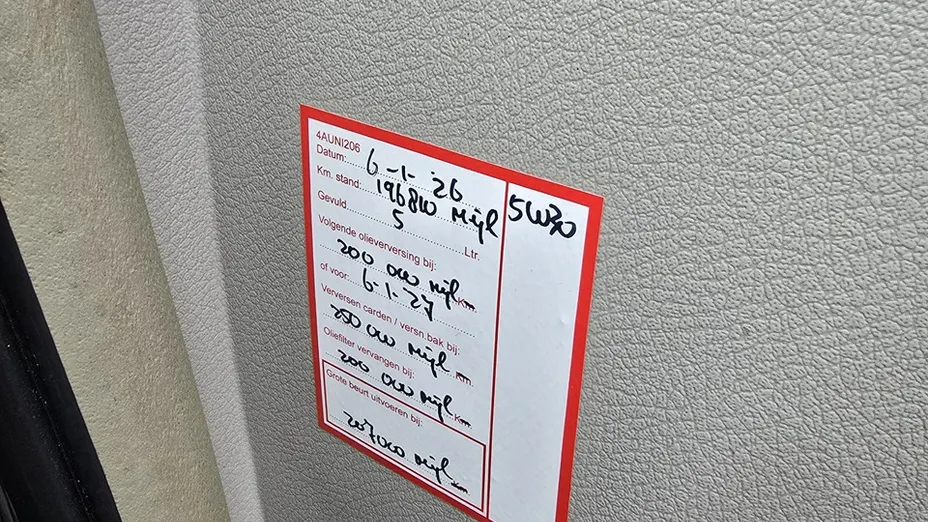 4AUNI206
Datum: 6-1-26
Km. stand: 196810 Mijl
5W30
Gevuld 5 Ltr.
Volgende olieverversing bij:
200 000 Mijl Km
of voor: 6-1-27
Verversen carden / versn.bak bij:
250 000 Mijl Km.
Oliefilter vervangen bij:
200 000 Mijl Km
Grote beurt uitvoeren bij:
207000 Mijl Km